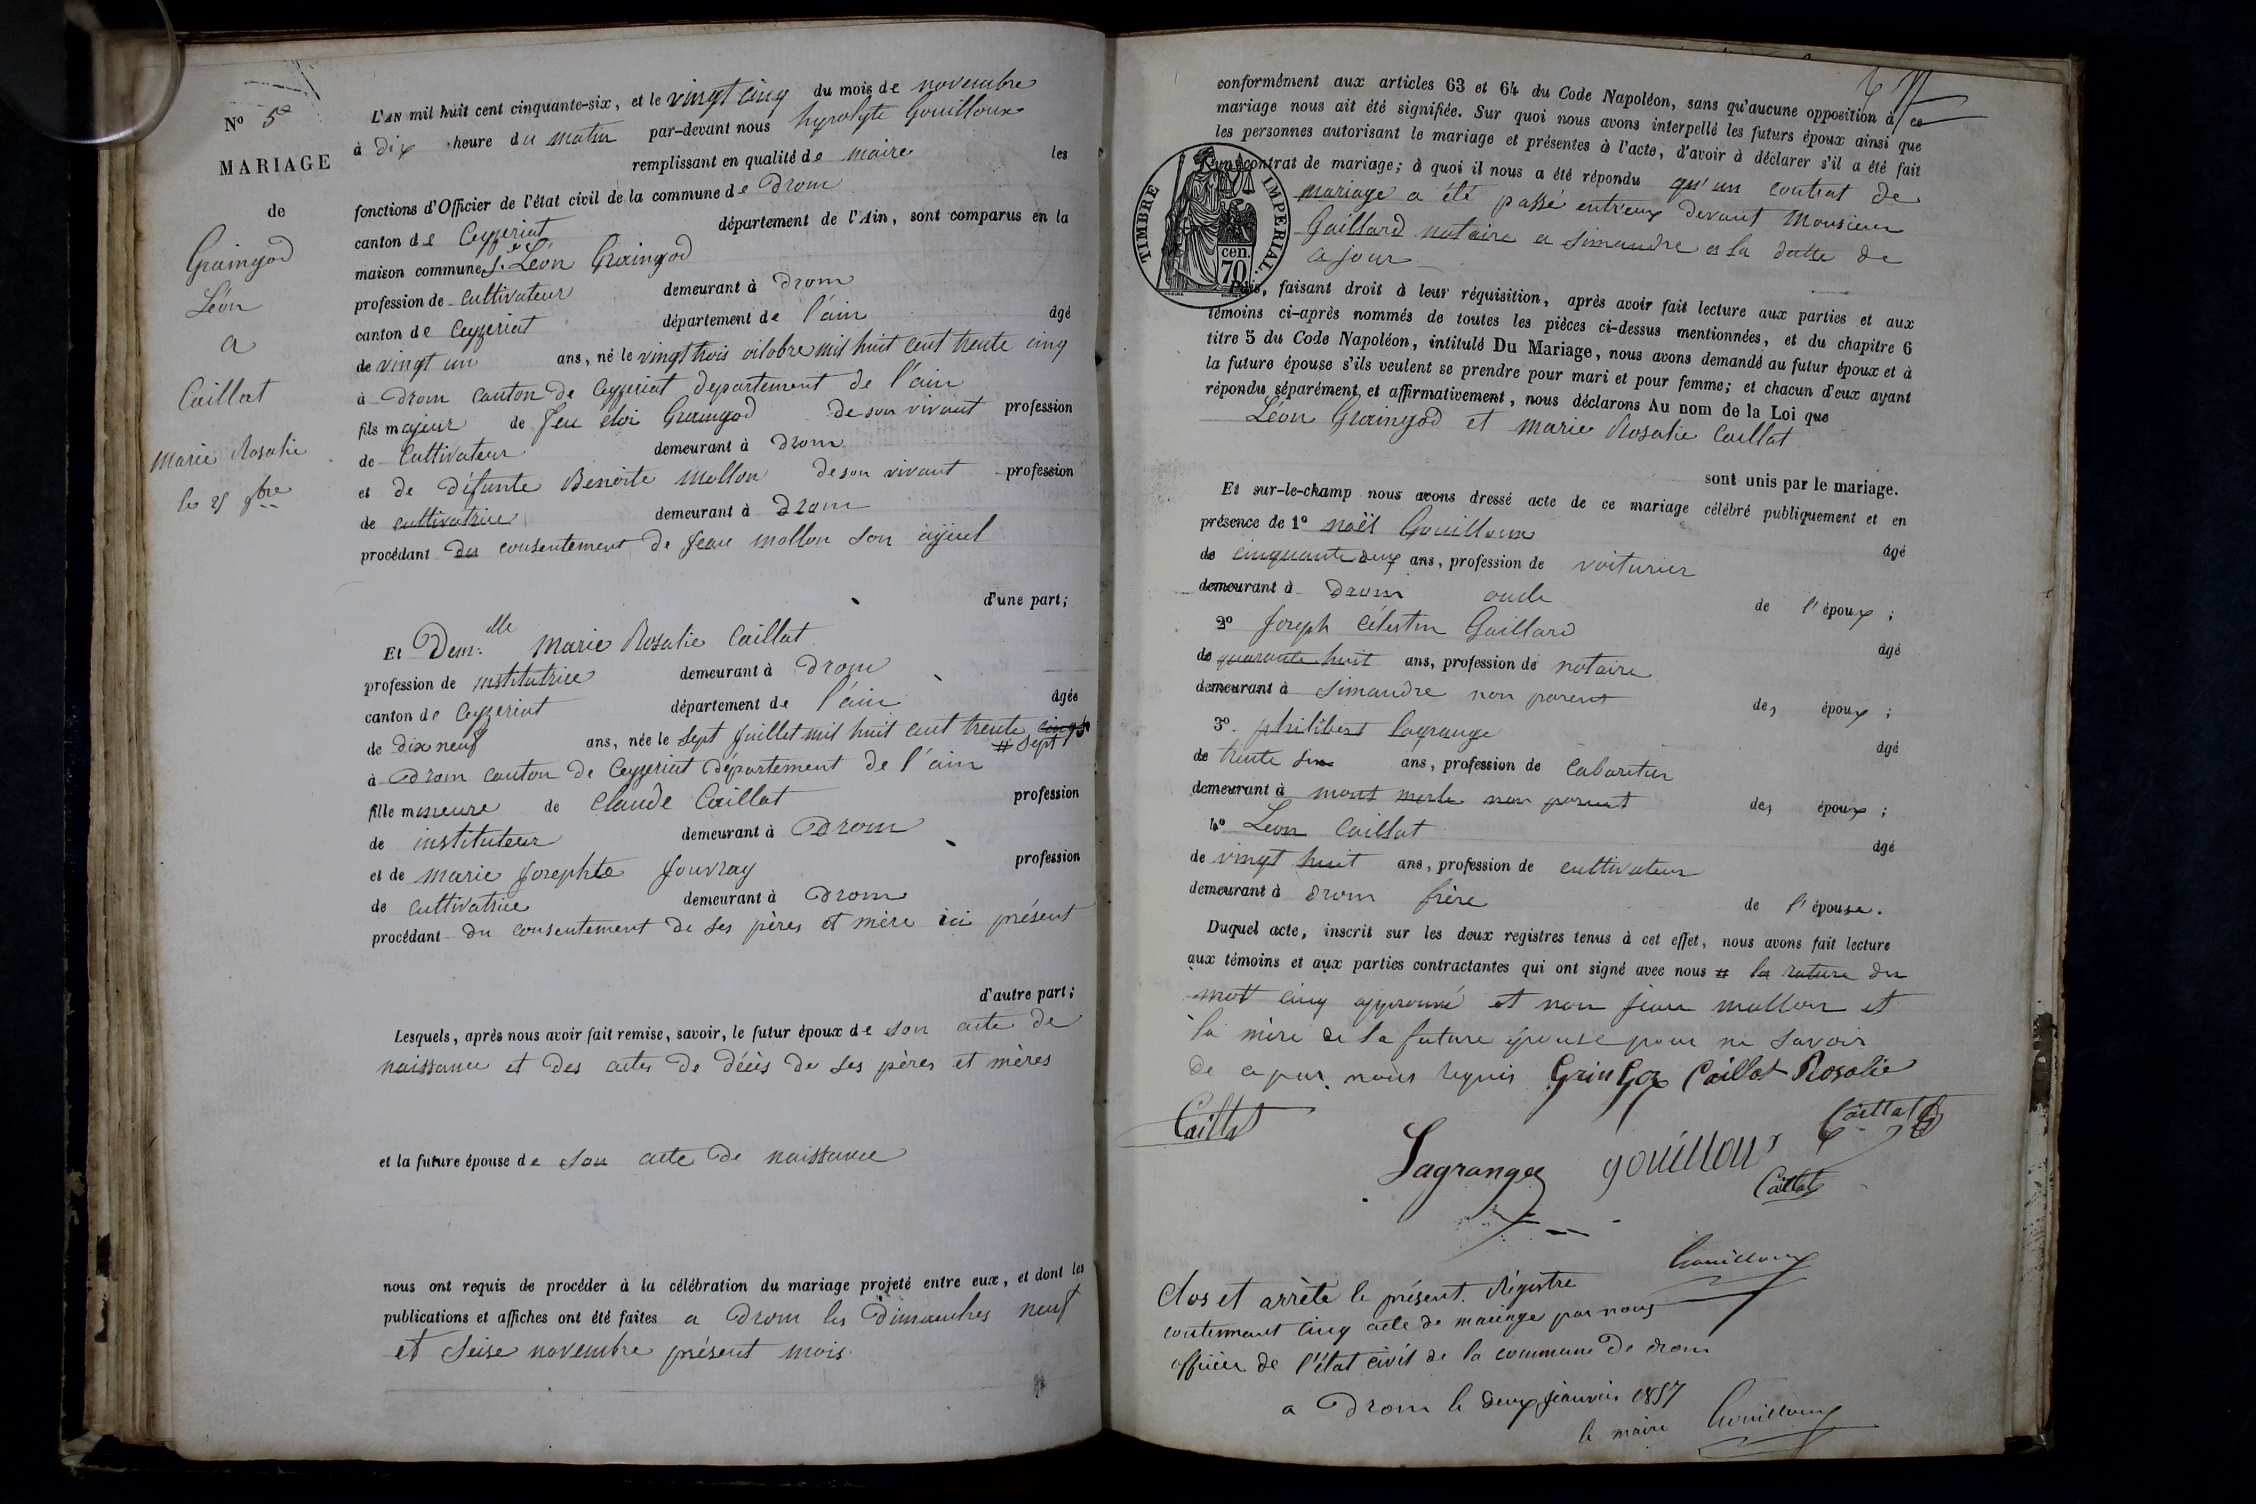 N° 5e
MARIAGE
de
Graingod
Léon
a
Caillat
Marie Rosalie
le 25 9bre
L'AN mil huit cent cinquante-six, et le vingt cinq du mois de novembre
à dix heure du matin par-devant nous hypolyte Gouilloux
remplissant en qualité de maire les
fonctions d'Officier de l'état civil de la commune de Drom
canton de Ceyzeriat département de l'Ain, sont comparus en la
maison commune Sr Léon Graingod
profession de cultivateur demeurant à Drom
canton de Ceyzeriat département de l'ain âgé
de vingt un ans, né le vingt trois octobre mil huit cent trente cinq
à Drom canton de Ceyzeriat departement de l'ain
fils majeur de feu éloi Graingod de son vivant profession
de Cultivateur demeurant à Drom
et de défunte Benoite mollon de son vivant profession
de cultivatrice demeurant à Drom
procédant du consentement de Jean mollon son aÿeul
d'une part;
Et Demlle Marie Rosalie Caillat
profession de institutrice demeurant à Drom
canton de Ceyzeriat département de l'ain âgée
de dix neuf ans, née le sept Juillet mil huit cent trente cinq
# sept
à Drom canton de Ceyzeriat département de l'ain
fille mineure de Claude Caillat profession
de instituteur demeurant à Drom
et de marie Josephte Jouvray profession
de cultivatrice demeurant à Drom
procédant du consentement de ses pères et mère ici présent
d'autre part;
Lesquels, après nous avoir fait remise, savoir, le futur époux de son acte de
naissance et des actes de décès de ses pères et mères
et la future épouse de son acte de naissance
nous ont requis de procéder à la célébration du mariage projeté entre eux, et dont les
publications et affiches ont été faites a Drom les Dimanches neuf
et seise novembre présent mois
conformément aux articles 63 et 64 du Code Napoléon, sans qu'aucune opposition à ce
mariage nous ait été signifiée. Sur quoi nous avons interpellé les futurs époux ainsi que
les personnes autorisant le mariage et présentes à l'acte, d'avoir à déclarer s'il a été fait
un contrat de mariage; à quoi il nous a été répondu qu'un contrat de
mariage a été passé entr'eux devant Monsieur
Gaillard notaire a simandre es la datte de
ce jour
TIMBRE IMPÉRIAL.
cen.
70
Puis, faisant droit à leur réquisition, après avoir fait lecture aux parties et aux
témoins ci-après nommés de toutes les pièces ci-dessus mentionnées, et du chapitre 6
titre 5 du Code Napoléon, intitulé Du Mariage, nous avons demandé au futur époux et à
la future épouse s'ils veulent se prendre pour mari et pour femme; et chacun d'eux ayant
répondu séparément et affirmativement, nous déclarons Au nom de la Loi que
Léon Graingod et marie Rosalie Caillat
sont unis par le mariage.
Et sur-le-champ nous avons dressé acte de ce mariage célébré publiquement et en
présence de 1° noël Gouilloux âgé
de cinquante deux ans, profession de voiturier
demeurant à Drom oncle de l'époux;
2° Joseph Célestin Gaillard âgé
de quarante huit ans, profession de notaire
demeurant à simandre non parent des époux;
3° philibert Lagrange âgé
de trente six ans, profession de Cabaretier
demeurant à mont merle non parent des époux;
4° Léon Caillat âgé
de vingt huit ans, profession de cultivateur
demeurant à Drom frère de l'épouse.
Duquel acte, inscrit sur les deux registres tenus à cet effet, nous avons fait lecture
aux témoins et aux parties contractantes qui ont signé avec nous # la rature du
mot cinq approuvé et non jean mollon et
la mère de la future épouse pour ne savoir
de ce par nous requis Gringoz Caillat Rosalie
Caillat Caillat
Lagrange gouilloux
Caillat
Gouilloux
Clos et arrèté le présent Régistre
contennant cinq acte de mariage par nous
officier de l'état civil de la commune de drom
a Drom le deux janvier 1857
le maire Gouilloux